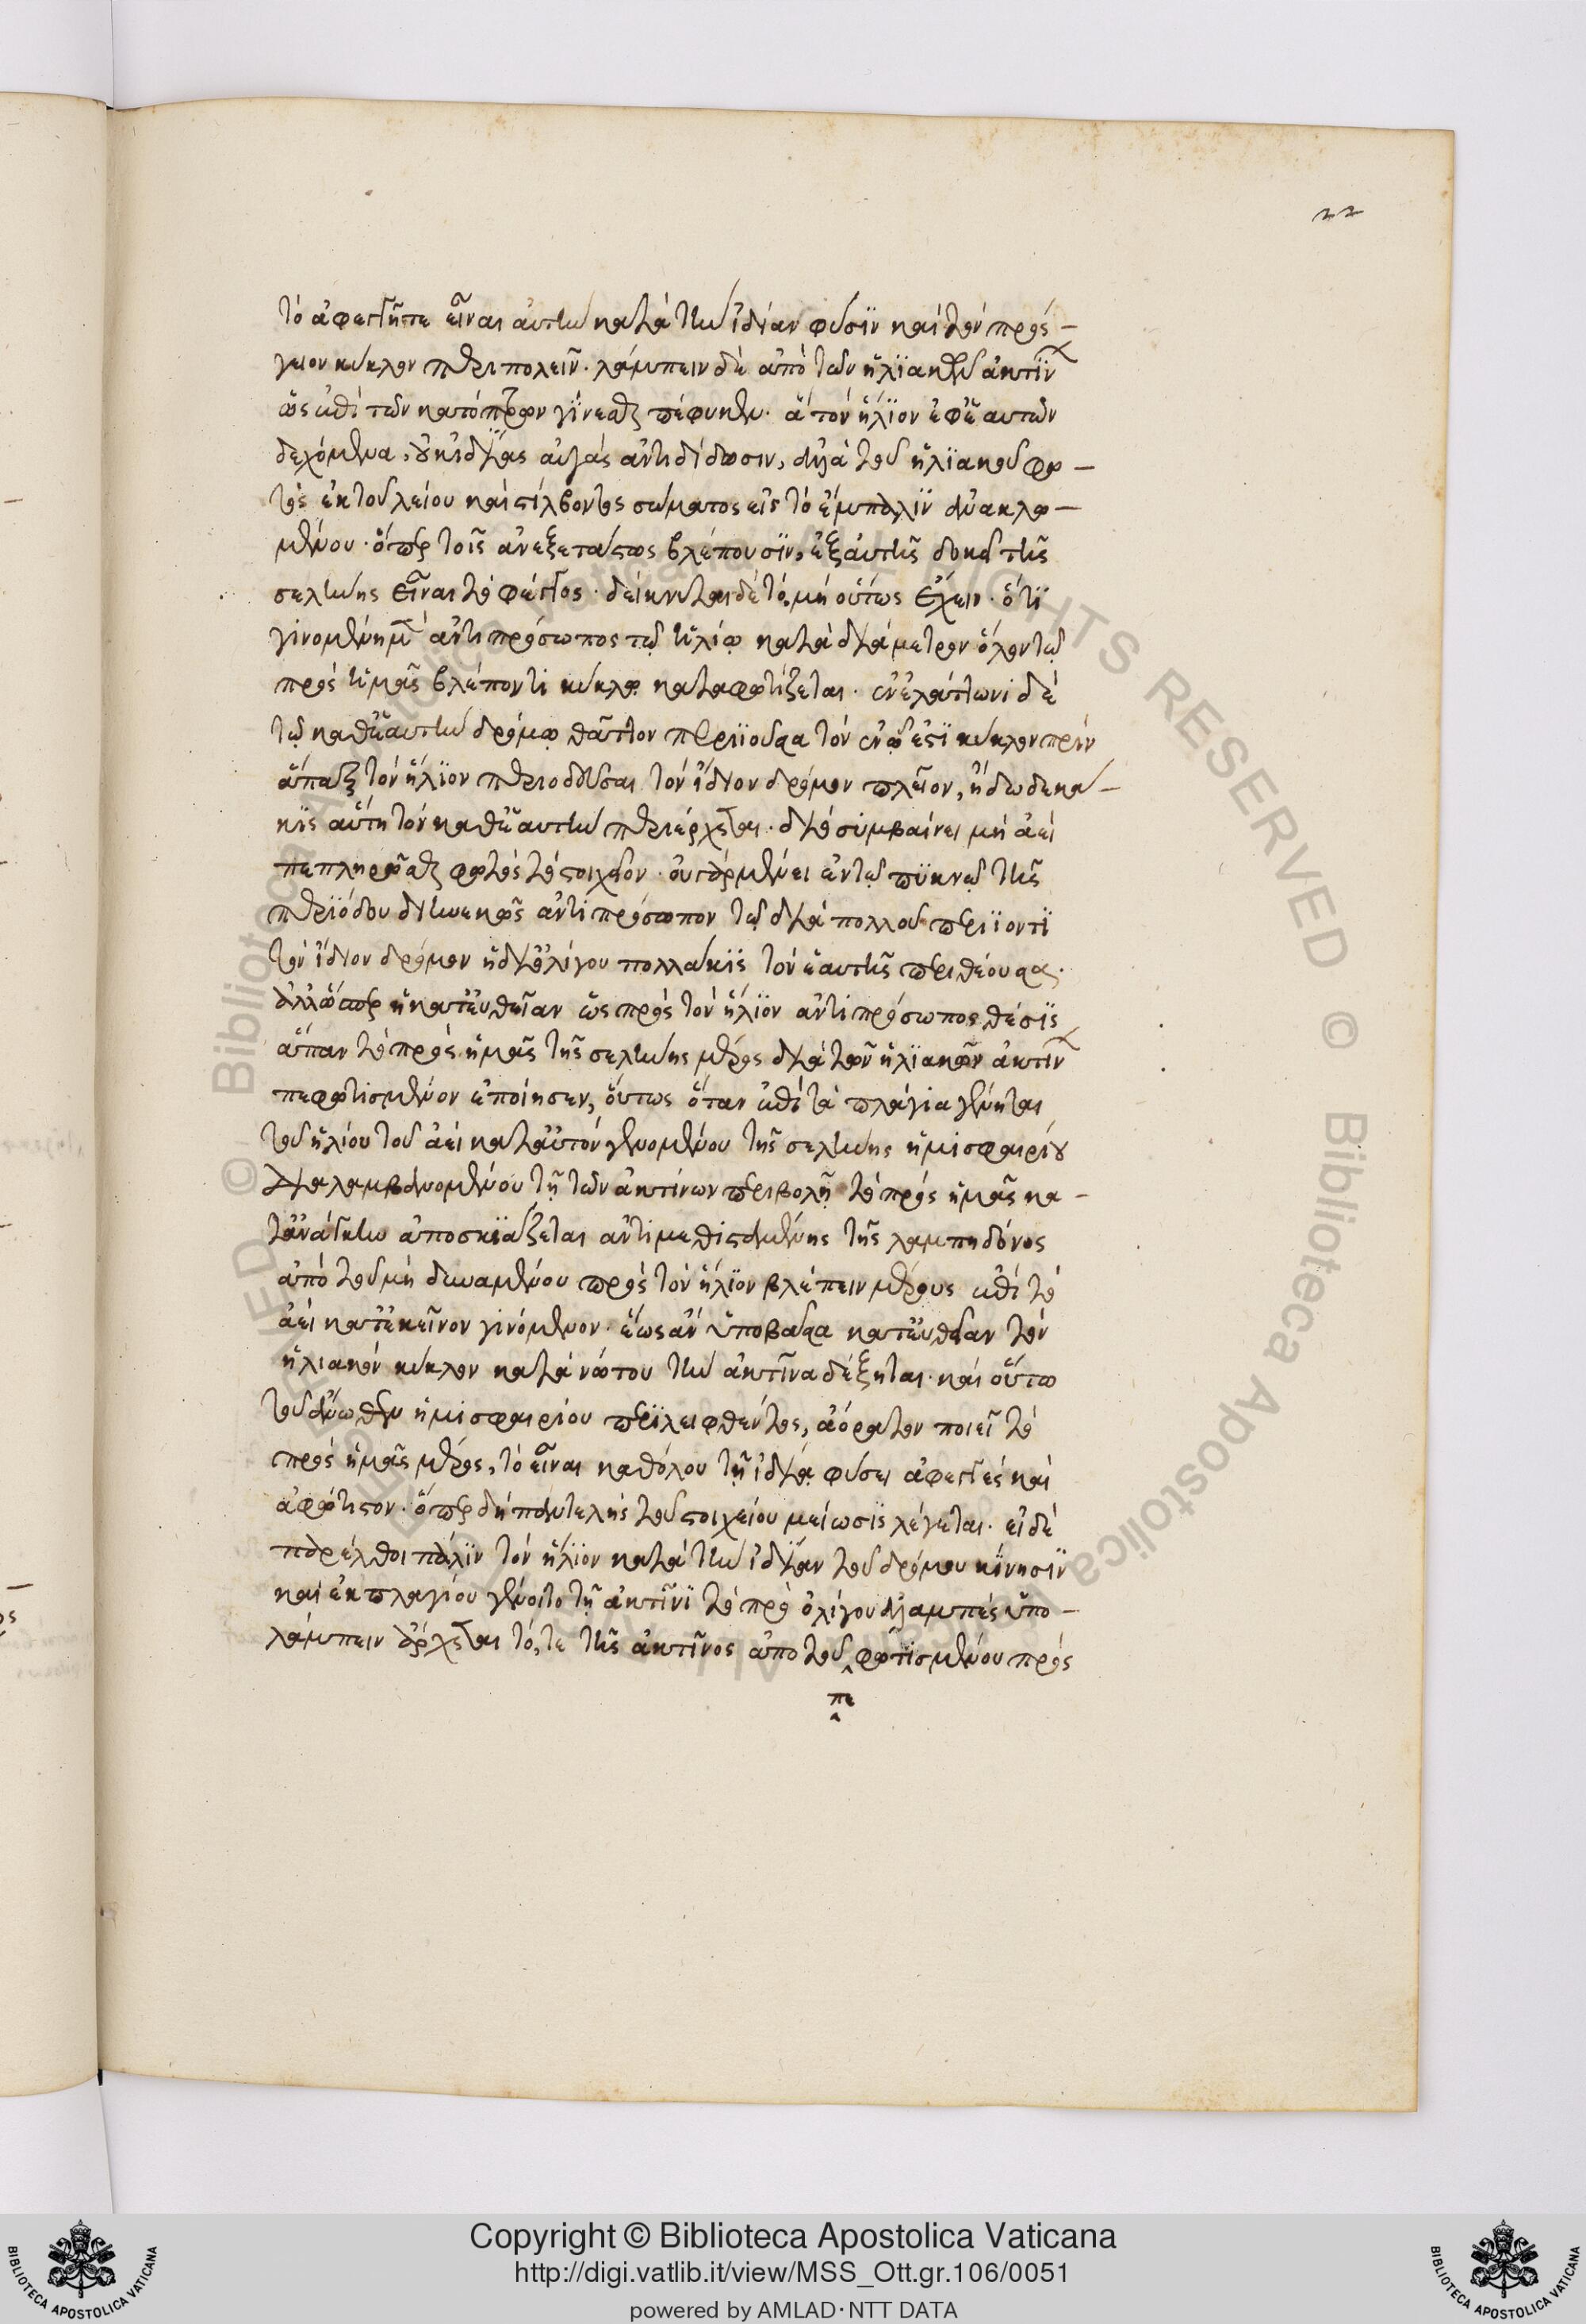 22
τὸ ἀφεγγῆ τε εἶναι αὐτὴν κατὰ τὴν ἰδίαν φύσϊν καὶ τὸν πρόσ-
γειον κύκλον περιπολεῖν· λάμπειν δὲ ἀπὸ τῶν ἡλϊακῶν ἀκτίν
ὡς ἐπὶ τῶν κατόπτρων γίνεσθαι πέφυκεν· ἃ τὸν ἥλϊον ἐφ' ἑαυτῶν
δεχόμενα, οὐκ ἰδίας αὐγὰς ἀντιδίδωσιν, ἀλλὰ τοῦ ἡλϊακοῦ φω-
τὸς ἐκ τοῦ λείου καὶ στίλβοντος σώματος εἰς τὸ ἔμπαλϊν ἀνακλω-
μένου· ὅπερ τοῖς ἀνεξετάστως βλέπουσϊν, ἐξ αὐτῆς δοκεῖ τῆς
σελήνης εἶναι τὸ φέγγος· δείκνυται δὲ τὸ μὴ οὕτως ἔχειν· ὅτϊ
γινομένη μὲν ἀντιπρόσωπος τῷ ἡλίῳ κατὰ διάμετρον ὅλον τῷ
πρὸς ἡμᾶς βλέποντι κύκλῳ καταφωτίζεται· ἐν ἐλάττωνι δὲ
τῷ καθ' ἑαυτὴν δρόμῳ θᾶττον περιϊοῦσα τὸν ἐν ᾧ ἐστϊ κύκλον πρὶν
ἅπαξ τὸν ἥλϊον περιοδεῦσαι τὸν ἴδιον δρόμον πλεῖον, ἢ δωδεκά-
κϊς αὕτη τὸν καθ' ἑαυτὴν περιέρχεται· διὸ συμβαίνει μὴ ἀεὶ
πεπληρῶσθαι φωτὸς τὸ στοιχεῖον· οὐ γὰρ μένει ἐν τῷ πϋκνῷ τῆς
περϊόδου διηνεκῶς ἀντιπρόσωπον τῷ διὰ πολλοῦ περιϊόντϊ
τὸν ἴδιον δρόμον ἡ δι' ὀλίγου πολλάκϊς τὸν ἑαυτῆς περιθέουσα·
ἀλλ' ὥσπερ ἡ κατ' εὐθεῖαν ὡς πρὸς τὸν ἥλϊον ἀντιπρόσωπος θέσϊς
ἅπαν τὸ πρὸς ἡμᾶς τῆς σελήνης μέρος διὰ τῶν ἡλϊακῶν ἀκτίν
πεφωτισμένον ἐποίησεν, οὕτως ὅταν ἐπὶ τὰ πλάγια γένηται
τοῦ ἡλίου τοῦ ἀεὶ κατ' αὐτὸν γενομένου τῆς σελήνης ἡμισφαιρίου
διαλαμβανομένου τῇ τῶν ἀκτίνων περιβολῇ τὸ πρὸς ἡμᾶς κα-
τ' ἀνάγκην ἀποσκϊάζεται ἀντιμεθισταμένης τῆς λαμπηδόνος
ἀπὸ τοῦ μὴ δυναμένου πρὸς τὸν ἥλϊον βλέπειν μέρους ἐπὶ τὸ
ἀεὶ κατ' ἐκεῖνον γινόμενον· ἕως ἂν ὑποβᾶσα κατ' εὐθεῖαν τὸν
ἡλιακὸν κύκλον κατὰ νώτου τὴν ἀκτῖνα δέξηται· καὶ οὕτω
τοῦ ἄνωθεν ἡμισφαιρίου περϊλειφθέντος, ἀόρατον ποιεῖ τὸ
πρὸς ἡμᾶς μέρος, τὸ εἶναι καθόλου τῇ ἰδίᾳ φύσει ἀφεγγὲς καὶ
ἀφώτιστον· ὅπερ δὴ παντελὴς τοῦ στοιχείου μείωσϊς λέγεται· εἰ δὲ
παρέλθοι πάλϊν τὸν ἥλϊον κατὰ τὴν ἰδίαν τοῦ δρόμου κίνησϊν
καὶ ἐκ πλαγίου γένοιτο τῇ ἀκτῖνϊ τὸ πρὸ ὀλίγου ἀλαμπὲς ὑπο-
λάμπειν ἄρχεται τό, τε τῆς ἀκτῖνος ἀπὸ τοῦ φωτϊσμένου πρὸς
πε
Copyright © Biblioteca Apostolica Vaticana
http://digi.vatlib.it/view/MSS_Ott.gr.106/0051
powered by AMLAD·NTT DATA